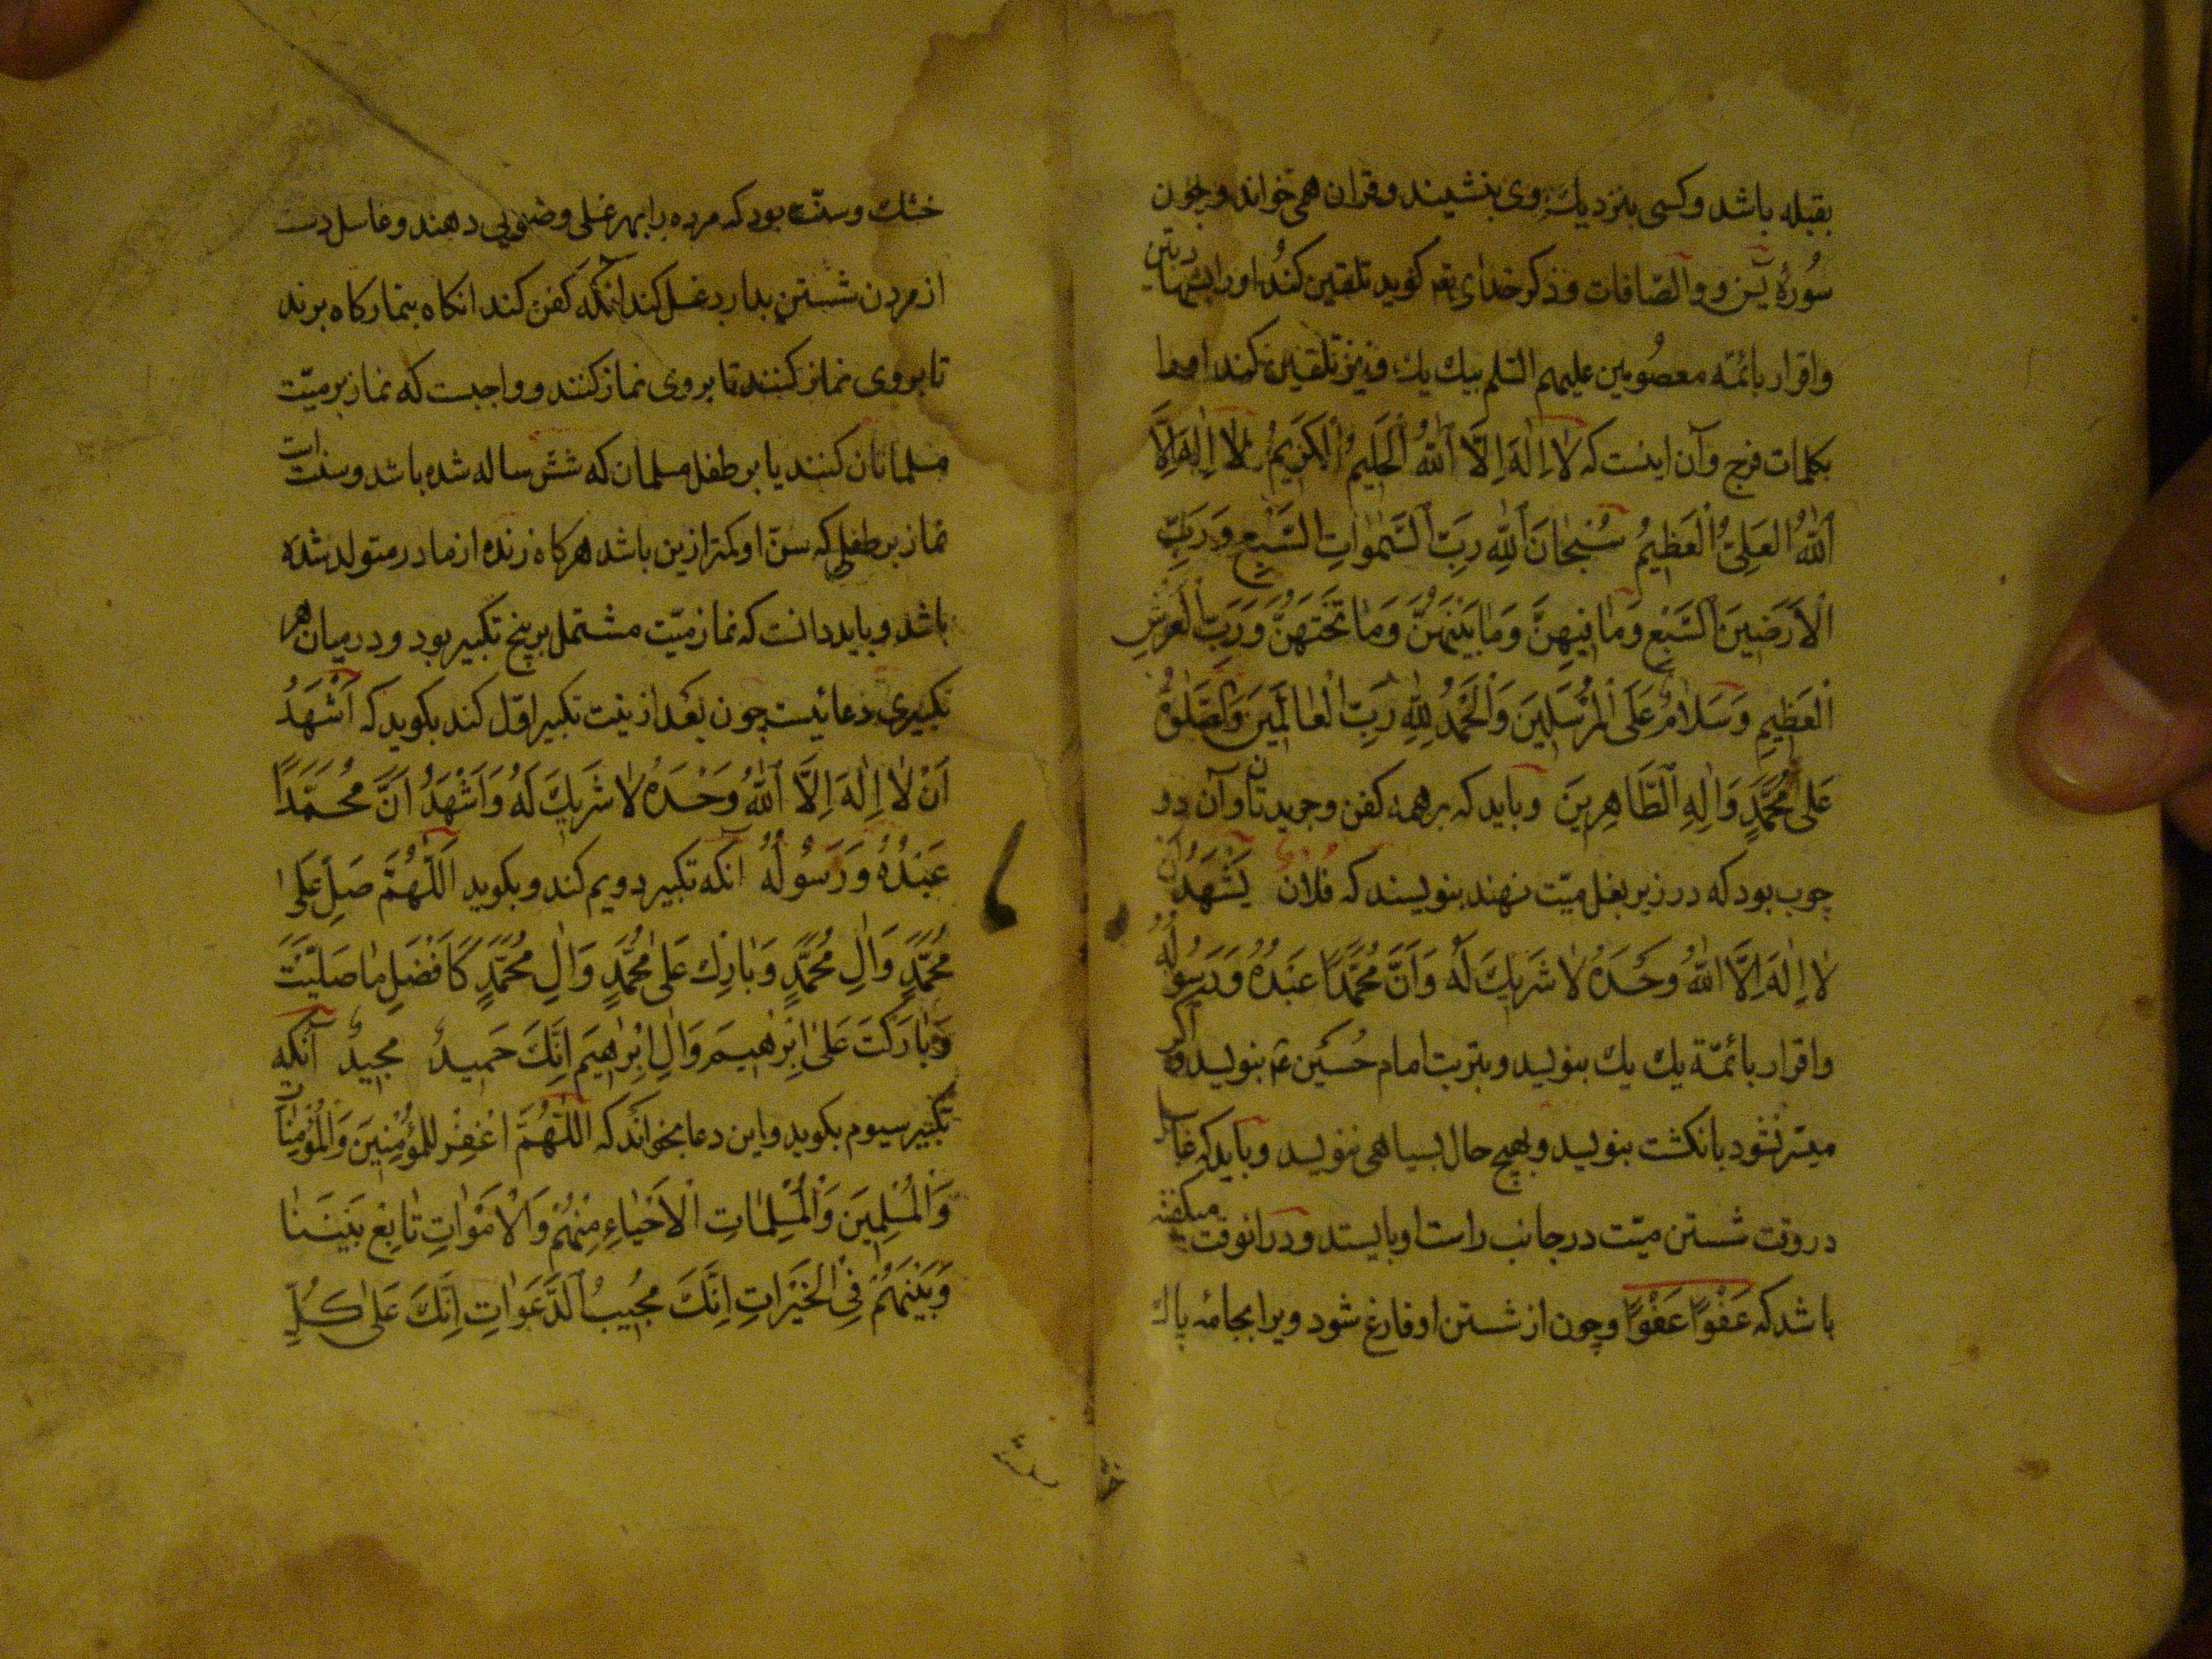 بقبله باشد و کسی بنزدیك وی بنشیند و قران همی خواند و چون
سُورۀ یٓس و والصّافات و ذکر خدای تع کوید تلقین کند او را بشهادتین
و اقرار بائمّه معصُومین علیهم السّلم بیك یك و نیز تلقین کند او را
بکلمات فرج و آن اینست که لٰا اِلٰهَ اِلَّا اَللّٰهُ الْحَلِیمُ الْکَرِیمُ لٰا اِلٰهَ اِلَّا
اَللّٰهُ الْعَلِیُّ الْعَظِیمُ سُبْحٰانَ اَللّٰهِ رَبِّ السَّمٰوٰاتِ السَّبْعِ وَ رَبِّ
الْاَرَضِینَ السَّبْعِ وَ مٰا فِیهِنَّ وَ مٰا بَیْنَهُنَّ وَ مٰا تَحْتَهُنَّ وَ رَبِّ الْعَرْشِ
الْعَظِیمِ وَ سَلٰامٌ عَلَی الْمُرْسَلِینَ وَ الْحَمْدُ لِلّٰهِ رَبِّ الْعٰالَمِینَ وَ الصَّلٰوةُ
عَلٰی مُحَمَّدٍ وَ اٰلِهِ الطَّاهِرِینَ و باید که بر همه کفن و جریدتان و آن دو
چوب بود که در زیر بغل میّت نهند بنویسند که فلان یَشْهَدُ اَنْ
لٰا اِلٰهَ اِلَّا اللّٰهُ وَحْدَهُ لٰا شَرِیكَ لَهُ وَ اَنَّ مُحَمَّدًا عَبْدُهُ وَ رَسُولُهُ
و اقرار بائمّة یك یك بنویسد و بتربت امام حُسَین ع بنویسد و اکر
میسّر نشود بانکشت بنویسد و بهیچ حال بسیاهی ننویسد و باید که غاسل
در وقت شستن میّت در جانب راست او بایستد و در انوقت میکفته
باشد که عَفْوًا عَفْوًا و چون از شستن او فارغ شود ویرا بجامۀ پاك
خشك و سنّت بود که مرده را بهر غسلی وضویی دهند و غاسل دست
از مردن شستن بدارد غسل کند انکه کفن کند انکاه بنمازکاه برند
تا بر وی نماز کنند تا بر وی نماز کنند و واجبست که نماز بر میّت
مسلمانان کنند یا بر طفل مسلمان که شش ساله شده باشد و سنّت است
نماز بر طفلی که سنّ او کمتر ازین باشد هرکاه زنده از مادر متولد شده
باشد و باید دانست که نماز میّت مشتمل بر پنج تکبیر بود و در میان هر
تکبیری دعائیست چون بعد از نیّت تکبیر اوّل کند بکوید که اَشْهَدُ
اَنْ لٰا اِلٰهَ اِلَّا اَللّٰهُ وَحْدَهُ لٰا شَرِیكَ لَهُ وَ اَشْهَدُ اَنَّ مُحَمَّدًا
عَبْدُهُ وَ رَسُولُهُ انکه تکبیر دویم کند و بکوید اَللّٰهُمَّ صَلِّ عَلٰی
مُحَمَّدٍ وَ اٰلِ مُحَمَّدٍ وَ بٰارِكْ عَلٰی مُحَمَّدٍ وَ اٰلِ مُحَمَّدٍ کَاَفْضَلِ مٰا صَلَیْتَ
وَ بٰارَکْتَ عَلٰی اِبْرٰهِیمَ وَ اٰلِ اِبْرٰاهِیمَ اِنَّكَ حَمیدٌ مجیدٌ آنکه
تکبیر سیوم بکوید و این دعا بخواند که اللّٰهُمَّ اغْفِرْ لِلمُؤْمِنِینَ وَ الْمُؤْمِنٰاتِ
وَ الْمُسْلِمِینَ وَ الْمُسْلِمٰاتِ الْاَحْیٰاءِ مِنْهُمْ وَ الْاَمْوٰاتِ تٰابِعْ بَیْنَنٰا
وَ بَیْنَهُمْ فِی الْخَیْرٰاتِ اِنَّكَ مُجِیبُ الدَّعَوٰاتِ اِنَّكَ عَلٰی کُلِّ